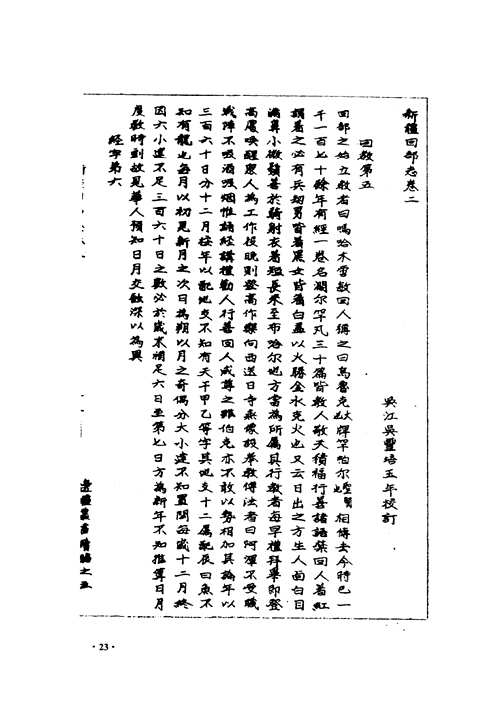 新疆回部志卷二
吳江吳豐培五年校訂
回教第五
回部之始立教者曰嗎哈木雷敏回人稱之曰烏魯克大牌罕哈爾聖賢也相傳去今時已一
千一百七十餘年有經一卷名闊爾罕凡三十篇皆教人敬天積福行善諸語集回人著紅
謂着之必有兵刼男皆着黑女皆着白蓋以火勝金水克火也又云日出之方生人面白目
滿鼻小微鬚善於騎射衣着短長來至布哈尔地方當為所屬其行教者每早禮拜畢即登
高處喚醒衆人為工作役晚則登高作樂向西送日寺無像設奉教傳法者曰阿渾不受職
戰陣不吸酒吸烟惟誦經講禮勸人行善回人咸尊之雖伯克亦不敢以勢相加其論年以
三百六十日分十二月按年以配地支不知有天干甲乙等字其地支十二属配辰曰魚不
知有龍也每月以初見新月之次日為朔以月之奇偶分大小建不知置閏每歲十二月終
因六小建不足三百六十日之數必於歲末補足六日至第七日方為新年不知推算日月
度數時刻故見華人預知日月交蝕深以為異
經字第六
邊疆叢書續編之五
·23·